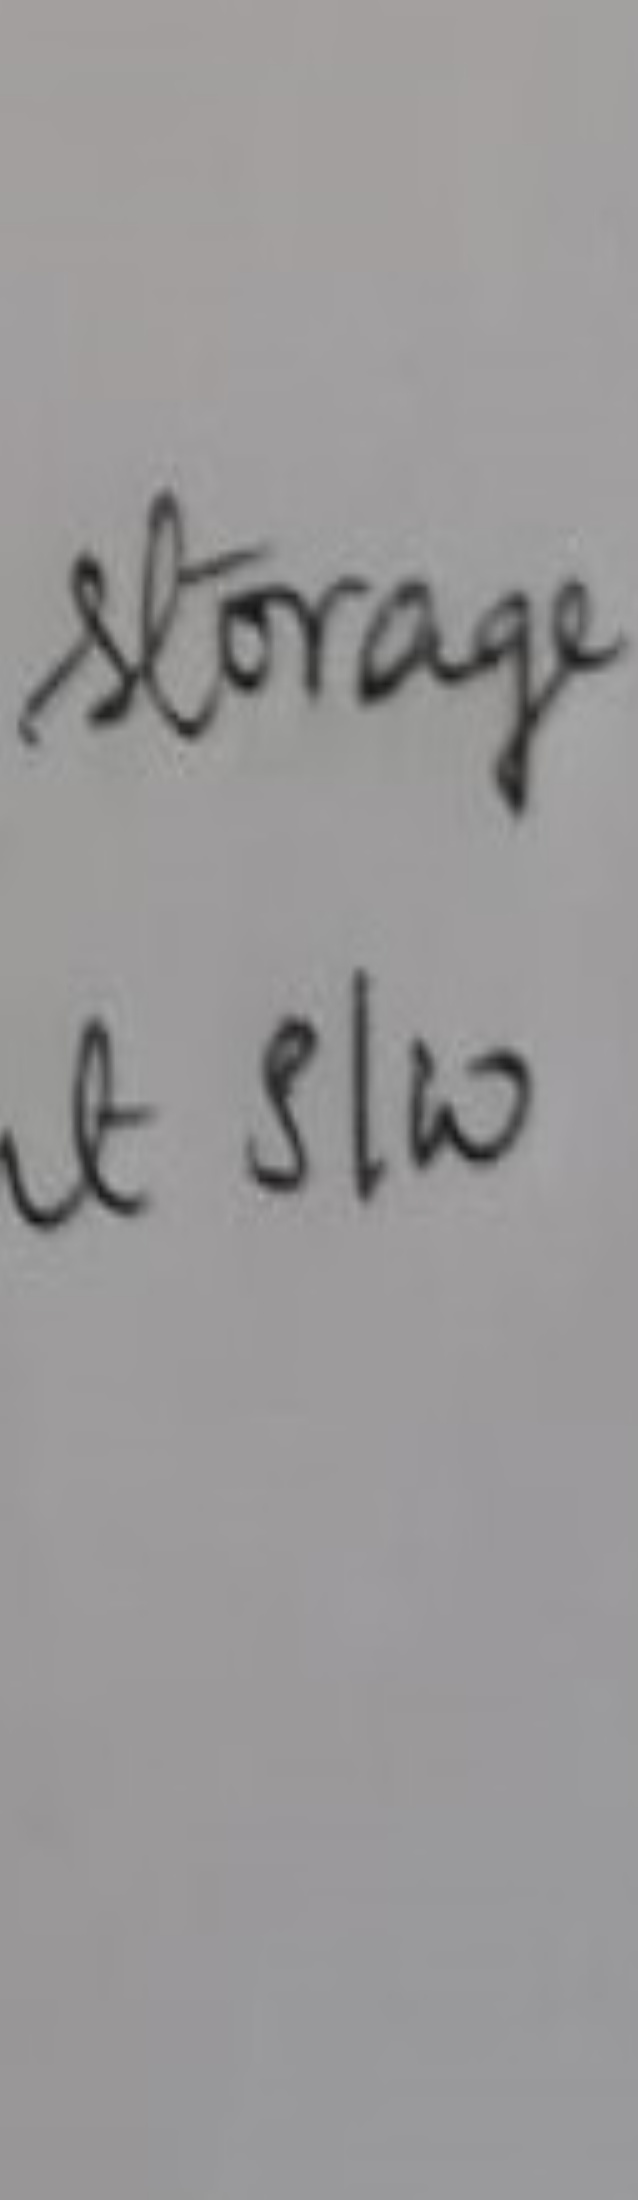 storage
nt S/W